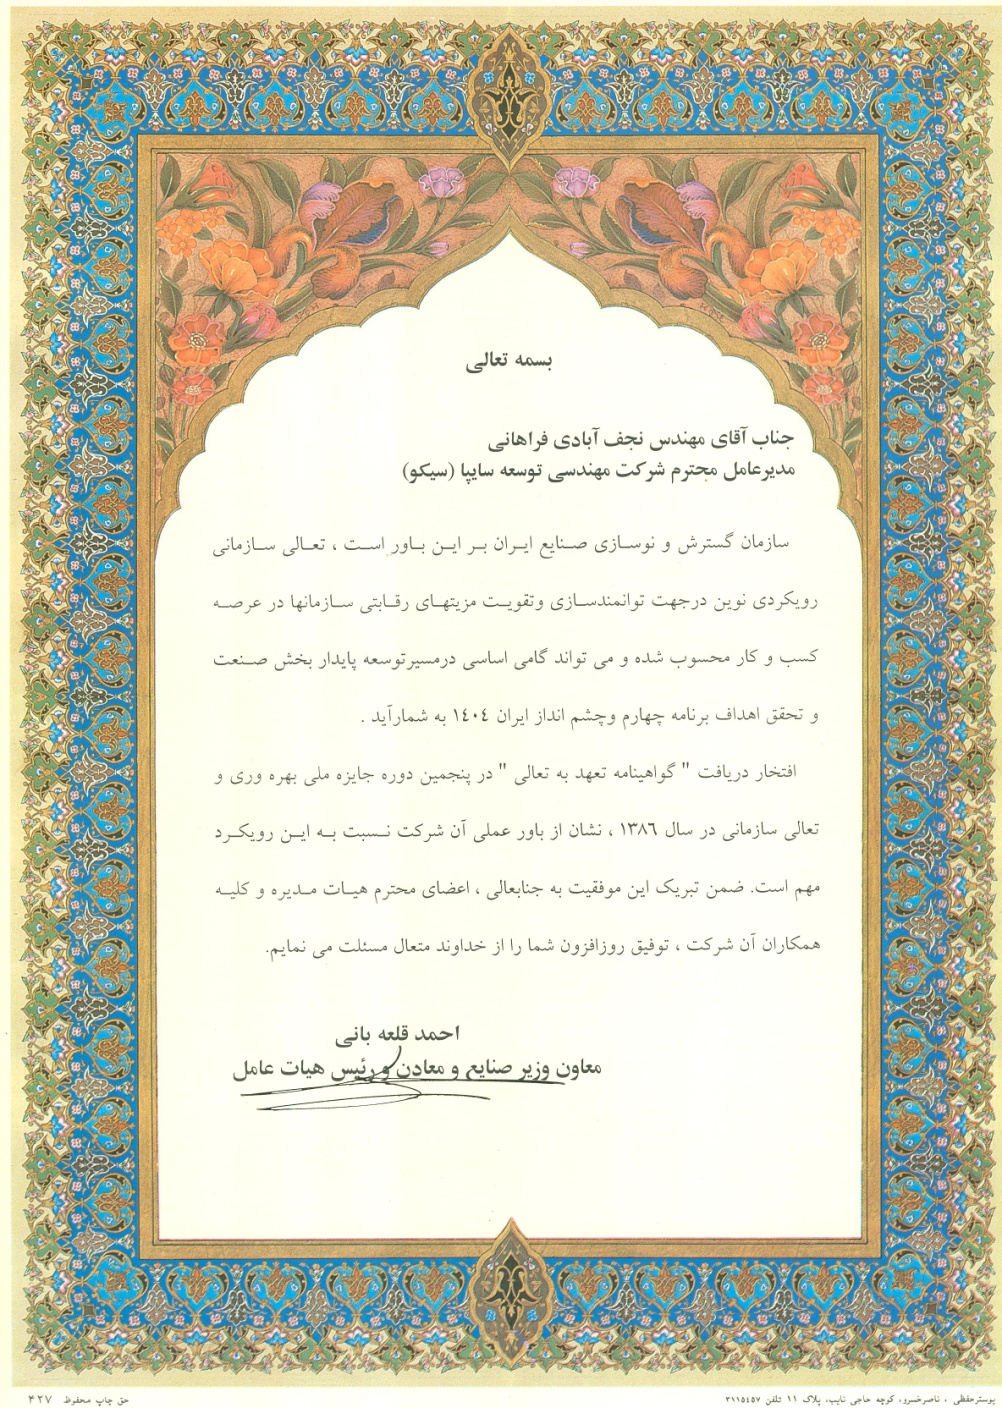 بسمه تعالی
جناب آقای مهندس نجف آبادی فراهانی
مدیرعامل محترم شرکت مهندسی توسعه سایپا (سیکو)
سازمان گسترش و نوسازی صنایع ایران بر این باور است ، تعالی سازمانی
رویکردی نوین درجهت توانمندسازی وتقویت مزیتهای رقابتی سازمانها در عرصه
کسب و کار محسوب شده و می تواند گامی اساسی درمسیرتوسعه پایدار بخش صنعت
و تحقق اهداف برنامه چهارم وچشم انداز ایران ١٤٠٤ به شمارآید .
افتخار دریافت " گواهینامه تعهد به تعالی " در پنجمین دوره جایزه ملی بهره وری و
تعالی سازمانی در سال ١٣٨٦ ، نشان از باور عملی آن شرکت نسبت به این رویکرد
مهم است. ضمن تبریک این موفقیت به جنابعالی ، اعضای محترم هیات مدیره و کلیه
همکاران آن شرکت ، توفیق روزافزون شما را از خداوند متعال مسئلت می نمایم.
احمد قلعه بانی
معاون وزیر صنایع و معادن و رئیس هیات عامل
پوسترحفظی ، ناصرخسرو، کوچه حاجی نایب، پلاک ١١ تلفن ٣١١٥٤٥٧
حق چاپ محفوظ ۴۲۷